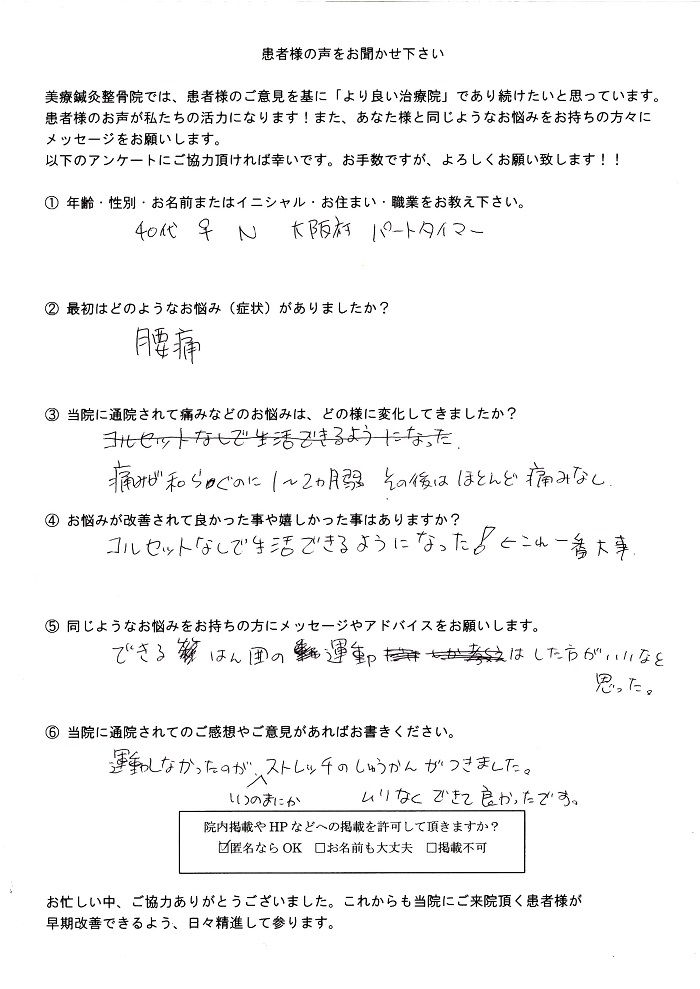 患者様の声をお聞かせ下さい
美療鍼灸整骨院では、患者様のご意見を基に「より良い治療院」であり続けたいと思っています。
患者様のお声が私たちの活力になります！また、あなた様と同じようなお悩みをお持ちの方々に
メッセージをお願いします。
以下のアンケートにご協力頂ければ幸いです。お手数ですが、よろしくお願い致します！！
① 年齢・性別・お名前またはイニシャル・お住まい・職業をお教え下さい。
40代 ♀ N 大阪府 パートタイマー
② 最初はどのようなお悩み（症状）がありましたか？
腰痛
③ 当院に通院されて痛みなどのお悩みは、どの様に変化してきましたか？
コルセットなしで生活できるようになった.
痛みが和らぐのに 1～2ヵ月弱 その後は ほとんど 痛みなし.
④ お悩みが改善されて良かった事や嬉しかった事はありますか？
コルセットなしで生活できるようになった! ←これ一番大事.
⑤ 同じようなお悩みをお持ちの方にメッセージやアドバイスをお願いします。
できる はん囲の 運動 はした方がいいなと
思った。
⑥ 当院に通院されてのご感想やご意見があればお書きください。
運動しなかったのが ストレッチのしゅうかんがつきました。
いつのまにか ムリなくできて良かったです。
院内掲載や HP などへの掲載を許可して頂きますか？
☑匿名なら OK □お名前も大丈夫 □掲載不可
お忙しい中、ご協力ありがとうございました。これからも当院にご来院頂く患者様が
早期改善できるよう、日々精進して参ります。